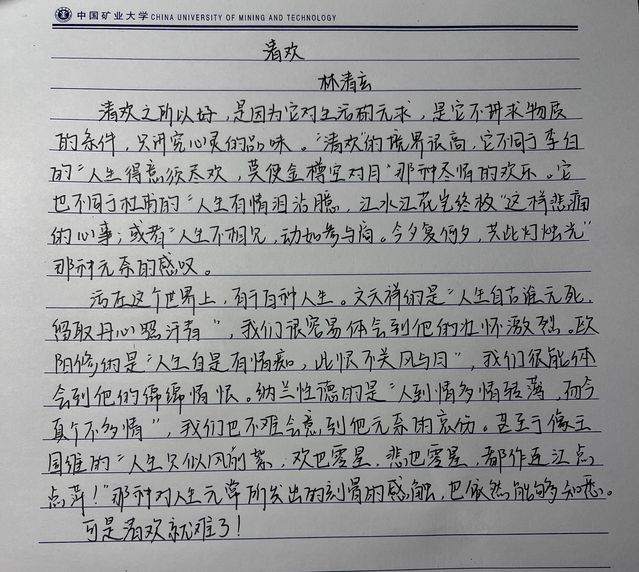 中国矿业大学 CHINA UNIVERSITY OF MINING AND TECHNOLOGY
清欢
林清玄
清欢之所以好，是因为它对生活的无求，是它不讲求物质
的条件，只讲究心灵的品味。“清欢”的境界很高，它不同于李白
的“人生得意须尽欢，莫使金樽空对月”那种尽情的欢乐。它
也不同于杜甫的“人生有情泪沾臆，江水江花岂终极”这样悲痛
的心事；或者“人生不相见，动如参与商。今夕复何夕，共此灯烛光”
那种无奈的感叹。
活在这个世界上，有千百种人生。文天祥的是“人生自古谁无死，
留取丹心照汗青”，我们很容易体会到他的壮怀激烈。欧
阳修的是“人生自是有情痴，此恨不关风与月”，我们很能体
会到他的绵绵情恨。纳兰性德的是“人到情多情转薄，而今
真个不多情”，我们也不难会意到他无奈的哀伤。甚至于像王
国维的“人生只似风前絮，欢也零星，悲也零星，都作连江点
点萍！”那种对人生无常所发出的刻骨的感触，也依然能够知悉。
可是清欢就难了！